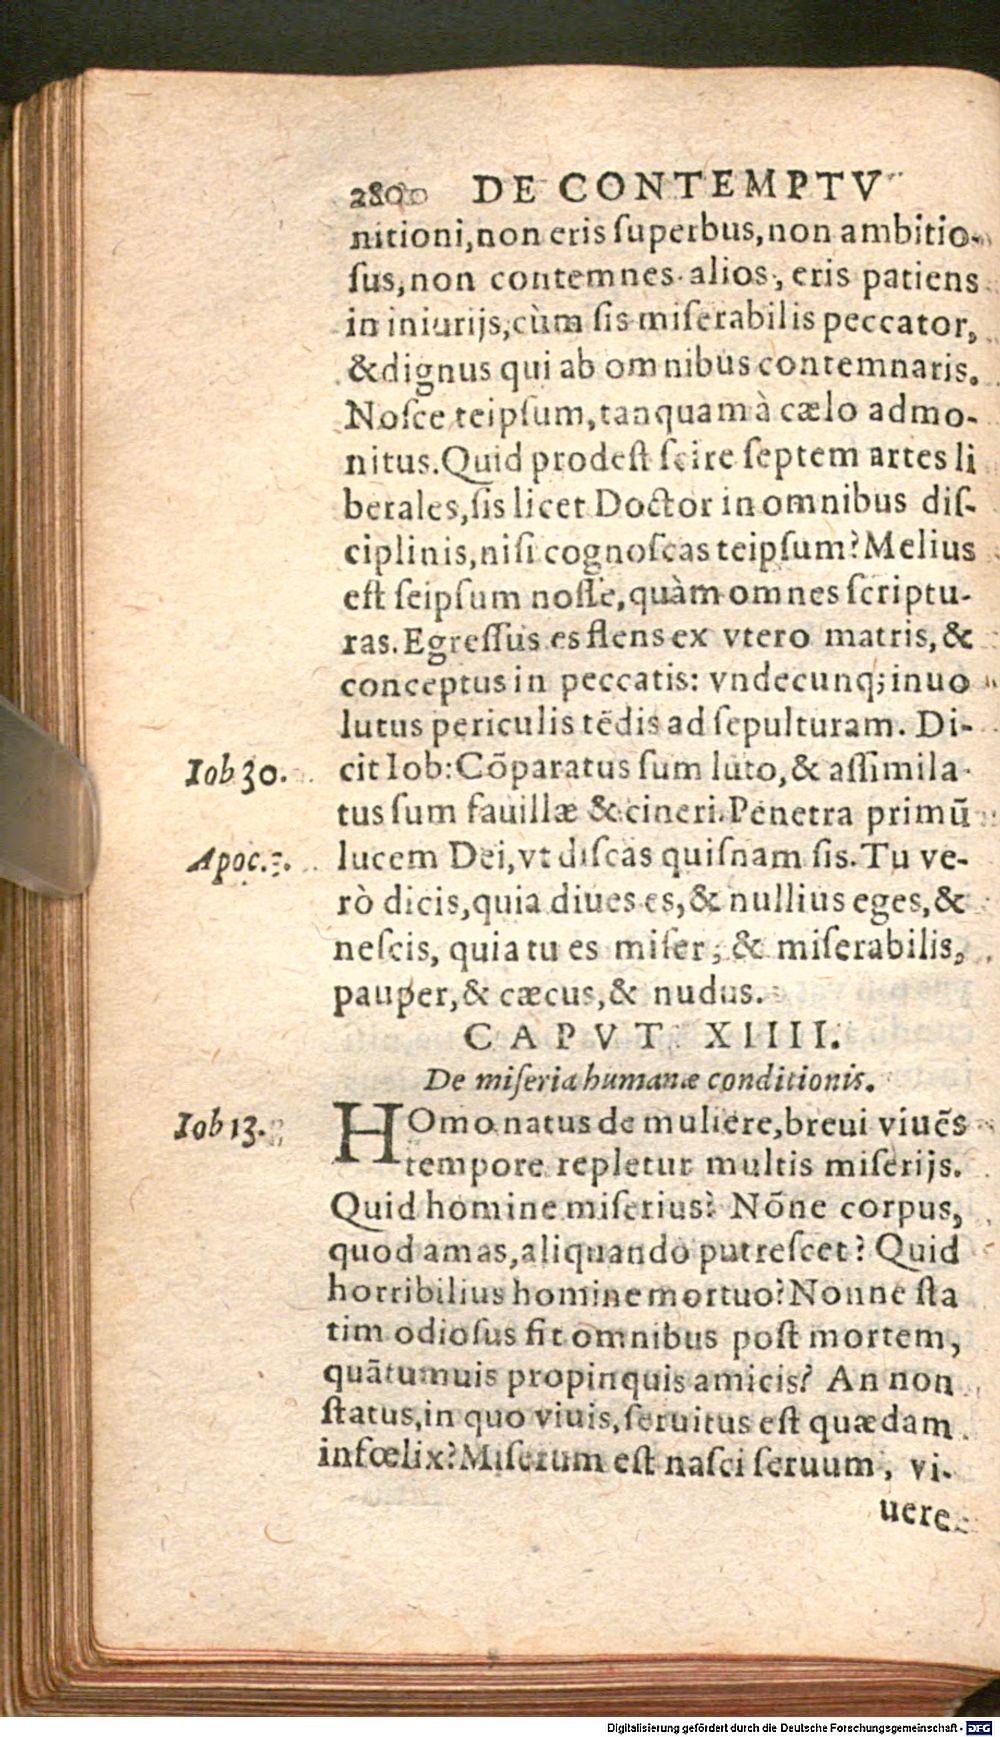 280 DE CONTEMPTV
nitioni, non eris ſuperbus, non ambitio-
ſus, non contemnes alios, eris patiens
in iniurijs, cùm ſis miſerabilis peccator,
& dignus qui ab omnibus contemnaris.
Noſce teipſum, tanquam à cælo admo-
nitus. Quid prodeſt ſcire ſeptem artes li
berales, ſis licet Doctor in omnibus diſ-
ciplinis, niſi cognoſcas teipſum? Melius
eſt ſeipſum noſſe, quàm omnes ſcriptu-
ras. Egreſſus es flens ex vtero matris, &
conceptus in peccatis: vndecunq; inuo
lutus periculis tēdis ad ſepulturam. Di-
Iob 30. cit Iob: Cōparatus ſum luto, & aſſimila-
tus ſum fauillæ & cineri. Penetra primū
Apoc. 3. lucem Dei, vt diſcas quiſnam ſis. Tu ve-
rò dicis, quia diues es, & nullius eges, &
neſcis, quia tu es miſer, & miſerabilis,
pauper, & cæcus, & nudus.
CAPVT XIIII.
De miſeria humanæ conditionis.
Iob 13. HOmo natus de muliere, breui viuēs
tempore repletur multis miſerijs.
Quid homine miſerius? Nōne corpus,
quod amas, aliquando putreſcet? Quid
horribilius homine mortuo? Nonne ſta
tim odioſus fit omnibus poſt mortem,
quātumuis propinquis amicis? An non
ſtatus, in quo viuis, ſeruitus eſt quædam
infœlix? Miſerum eſt naſci ſeruum, vi-
uere
Digitalisierung gefördert durch die Deutsche Forschungsgemeinschaft - DFG